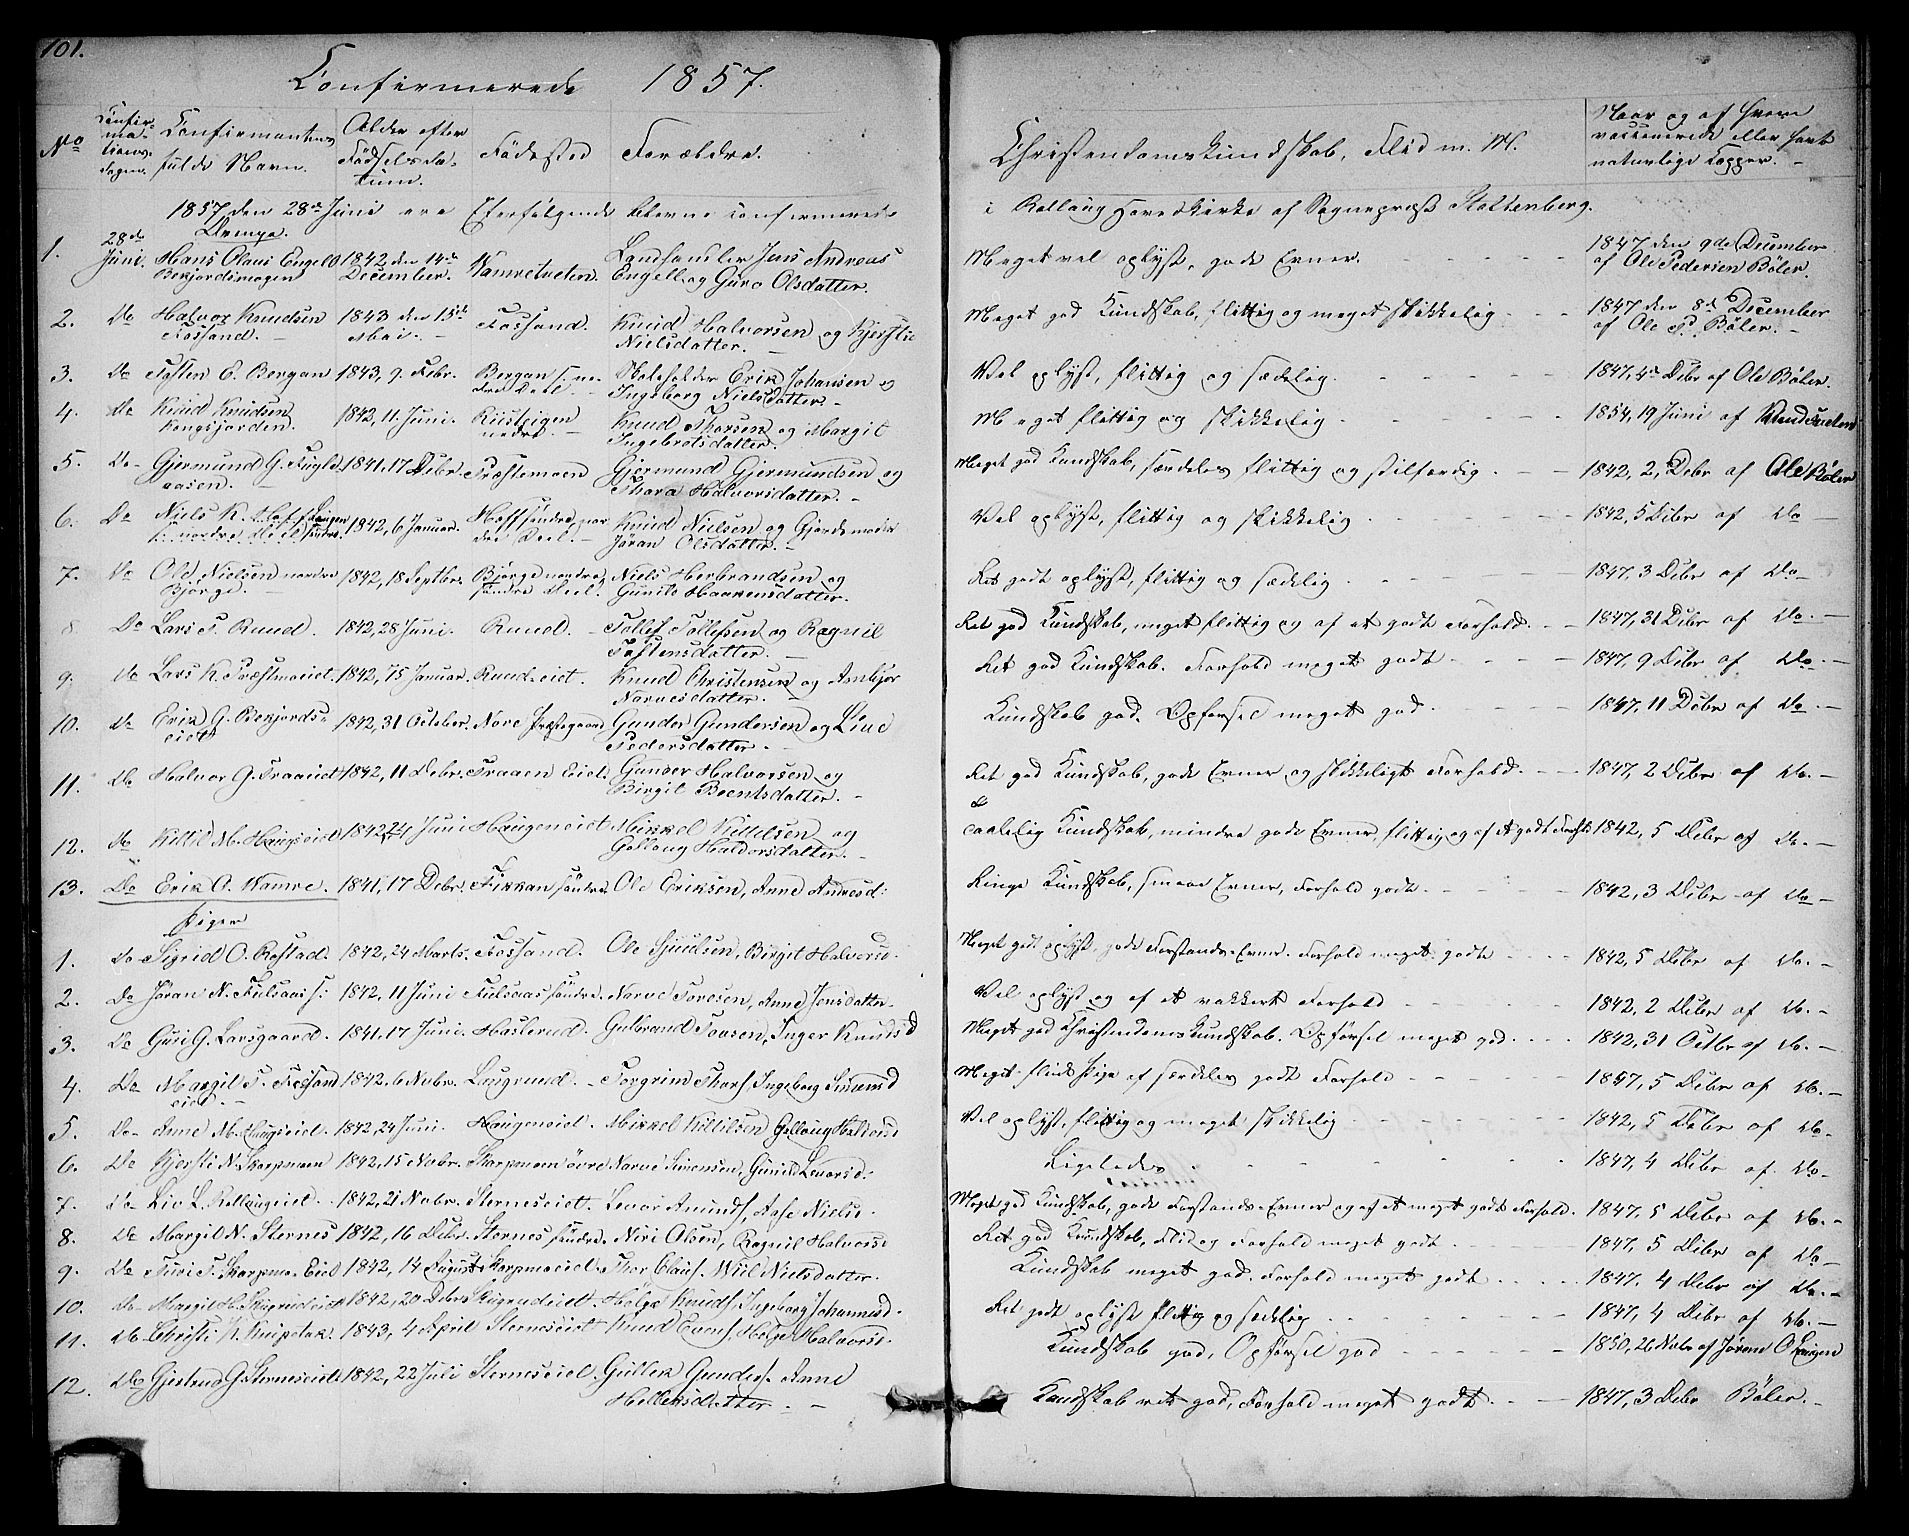 101.
Confirmerede 1857.
No
Confir-
ma-
tions-
dagen.
Confirmantens
fulde Navn.
Alder efter
Födselsda-
tum.
Födested
Forældre.
Christendomskundskab, Flid m. M.
Naar og af hvem
vaccinerede eller havt
naturlige Kopper. -
1857 den 28de Juni ere Efterfølgende blevne confirmerede
i Rollaug Hovedkirke af Sognepræst Stoltenberg.
Drenge.
1. 28de Juni. Hans Olaus Engell 1842 den 14de Vamretveten. Landhandler Jens Andreas Meget vel oplyst, gode Evner. 1847 den 9de December
Bekjordsmogen December. Engell og Guro Olsdatter. af Ole Pedersen Bøler.
2. Do Halvor Knudsen 1843 den 15de Fossand. Knud Halvorsen og Kjersti Meget god Kundskab, flittig og meget skikkelig 1847 den 8de December
Fossand. Mai. Nielsdatter. af Ole P. Bøler.
3. Do Tosten E. Bergan 1843, 9. Febr. Bergan Skoleholder Erik Johansen og Vel oplyst, flittig og sædelig. 1847, 4de Debr af Ole Bøler.
Ingeborg Nielsdatter.
4. Do Knud Knudsen 1842, 11 Juni. Knud Thorsen og Margit Meget flittig og skikkelig 1854, 19 Juni af
Kongsjorden. nedre. Ingebretsdatter.
5. Do Gjermund G. Fugle- 1841, 17 Debr. Præstemoen Gjermund Gjermundsen og Meget god Kundskab, særdeles flittig og stilfærdig. 1842, 2, Debr af Ole Bøler
aasen. Thora Halvorsdatter.
6. Do Niels K. 1842, 6 Januar. Knud Nielsen og Gjordemoder Vel oplyst, flittig og skikkelig 1842, 5 Debr af Do
Jøran Olsdatter.
7. Do Ole Nielsen nordre 1842, 18 Septbr. Bjørge nordre, Niels Herbrandsen og Ret godt oplyst, flittig og sædelig 1847, 3 Debr af Do
Bjørge. søndre Deel. Gunild Haakensdatter.
8. Do Lars T. Ruud. 1842, 28 Juni. Ruud. Tollef Tollefsen og Ragnil Ret god Kundskab, meget flittig og af et godt Forhold. 1847, 31 Debr af Do.
Tostensdatter.
9. Do Lars K. Præstmoeiet. 1842, 15 Januar. Ruud-eiet. Knud Christensen og Anbjør Ret god Kundskab. Forhold meget godt 1847, 9 Debr af Do.
Narvesdatter.
10. Do Erik G. Bekjords- 1842, 31 October. Nore Præstegaard Gunder Gundersen og Live Kundskab god. Opførsel meget god. 1847, 11 Debr af Do.
eiet Pedersdatter.
11. Do Halvor G. Traaeiet 1842, 11 Debr. Traaen Eiet. Gunder Halvorsen og Ret god Kundskab, gode Evner og skikkeligt Forhold. 1847, 2 Debr af Do.
Birgit Beentsdatter.
12. Do Kittil M. Haugeneiet 1842, 24 Juni Haugeneiet Mikkel Kittilsen og taalelig Kundskab, mindre gode Evner, flittig og af et godt Forh. 1842, 5 Debr af Do.
Gollaug Haldorsdatter.
13. Do Erik O. Wamre. 1841, 17 Debr. Fikkan søndre. Ole Eriksen, Anne Andresd: Ringe Kundskab, smaae Evner, Forhold godt 1842, 3 Debr af Do
Piger
1. Do Sigrid O. Rostad. 1842, 24 Marts. Fossand. Ole Sjuulsen, Birgit Halvorsd. Meget godt oplyst, gode Forstands-Evner. Forhold meget godt 1842, 5 Debr af Do.
2. Do Jøran N. Fulsaas s: 1842, 11 Juni Fulsaas søndre. Narve Toresen, Anne Jensdatter. Vel oplyst og af et vakkert Forhold 1842, 2 Debr af Do.
3. Do Guri G. Larsgaard. 1841, 17 Juni. Haslerud. Gulbrand Toosen, Inger Knudsd Meget god Christendomskundskab. Opførsel meget god. 1842, 31 Octbr af Do.
4. Do Margit T. Fossand 1842, 6 Novbr. Laugrund. Torgrim Thors., Ingeborg Simensd Meget flink Pige af særdeles godt Forhold 1847, 5 Debr af Do.
eiet.
5. Do Anne M. Haugeneiet. 1842, 24 Juni. Haugeneiet. Mikkel Kittilsen, Gollaug Haldorsd Vel oplyst, flittig og meget skikkelig 1842, 5 Debr af Do.
6. Do Kjersti N. Skarpmoen 1842, 15 Novbr. Skarpmoen øvre Narve Simensen, Gunild Levorsd. Ligeledes 1847, 4 Debr af Do.
7. Do Liv L. Rollaugeiet. 1842, 21 Novbr. Sterneseiet. Levor Amunds., Aase Nielsd. Meget god Kundskab, gode Forstands-Evner og af et meget godt Forhold. 1847, 5 Debr af Do.
8. Do Margit N. Sternes 1842, 16 Debr. Sternes søndre. Niri Olsen, Ragnil Halvorsd Ret god Kundskab, Flid og Forhold meget godt 1847, 5 Debr af Do
9. Do Turi T. Skarpmo-Eiet 1842, 14 August Skarpmoeiet. Thor Claus. Wiil Nielsdatter. Kundskab meget god. Forhold meget godt 1847, 4 Debr af Do.
10. Do Margit H. Skigrudeiet 1842, 20 Debr. Skigrudeiet. Holge Knuds., Ingeborg Johannesd. Ret godt oplyst flittig og sædelig 1847, 4 Debr af Do.
11. Do Christi K. 1843, 4 April Sterneseiet Knud Evens., Helge Halvorsd. Kundskab god, Opførsel god 1850, 26 Nobr af Jøran O.
12. Do Gjertrud G. Sterneseiet 1842, 22 Juli Sterneseiet. Gullek Gunders. Anne Kundskab ret god, Forhold meget godt. 1847, 3 Debr Bøler.
Helleksdatter.